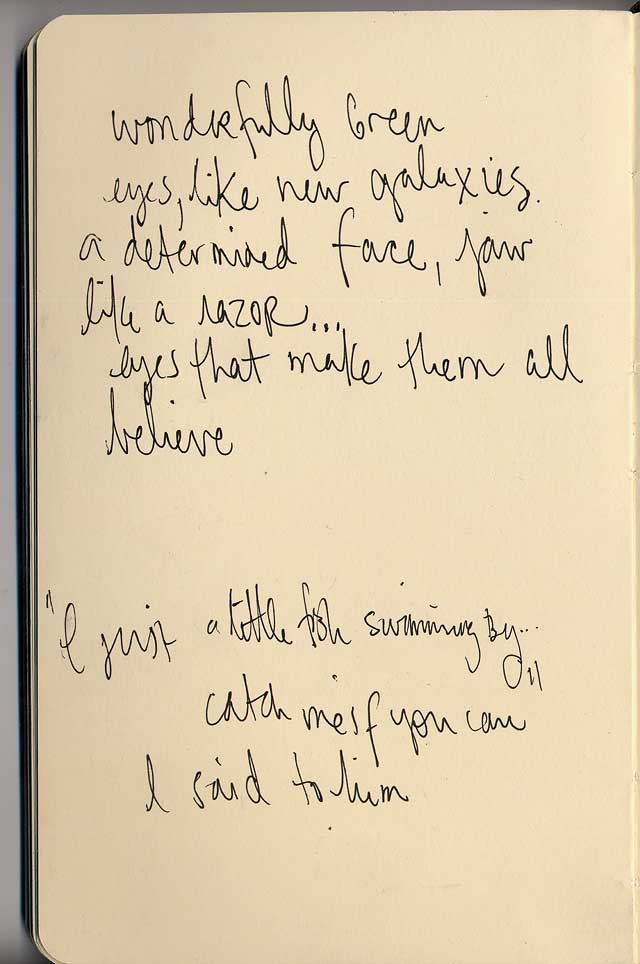 wonderfully Green
eyes, like new galaxies.
a determined face, jaw
like a razor...
eyes that make them all
believe
"I just a little fish swimming by...
catch me if you can"
I said to him